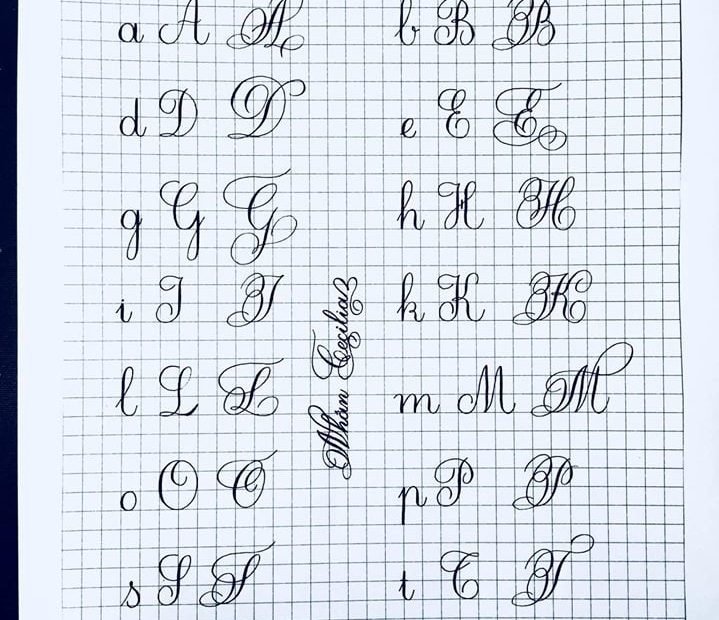 a A A b B B
d D D e E E
g G G h H H
i I I k K K
l L L m M M
o O O p P P
s S S t T T
Nhàn Cecilia